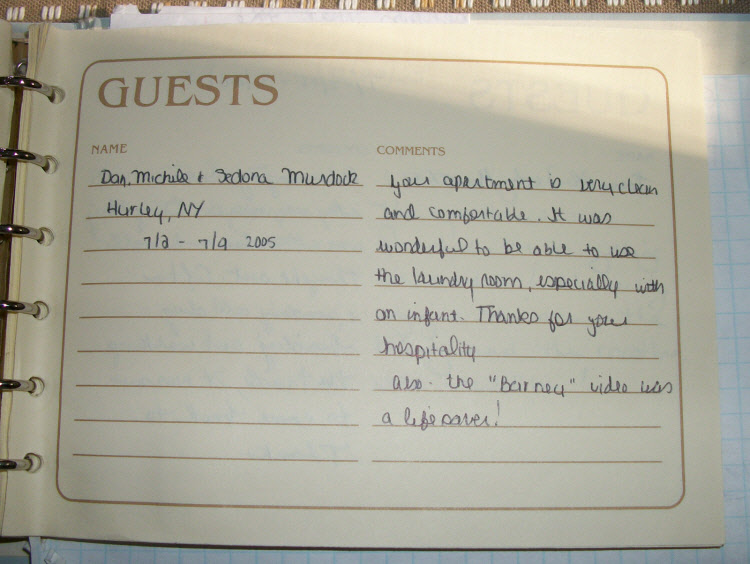 GUESTS
NAME
COMMENTS
Dan, Michile & Sedona Murdock
Hurley, NY
7/2 - 7/9 2005
your apartment is very clean
and comfortable. It was
wonderful to be able to use
the laundry room, especially with
an infant. Thanks for your
hospitality
also - the "Barney" video was
a life saver!